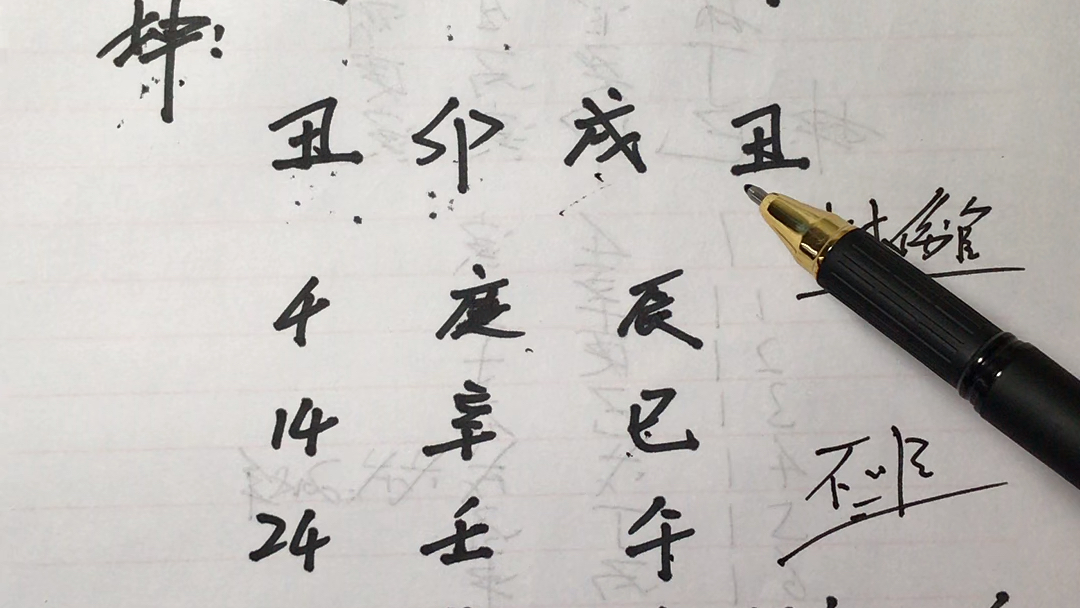 坤:
丑 卯 戌 丑
4 庚 辰
14 辛 巳
24 壬 午